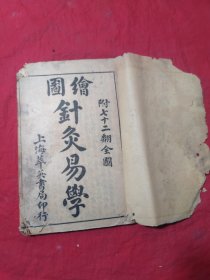 繪圖
針灸易學
附七十二翻全圖
上海華英書局印行